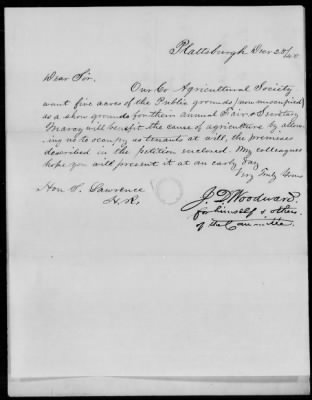 Plattsburgh Decr 23/48
Dear Sir.
Our Co Agricultural Society
want five acres of the Public grounds (now unoccupied)
as a show grounds for their annual Fair & Secretary
Marcy will benefit the cause of agriculture by allow-
ing us to occupy as tenants at will, the premises
described in the petition enclosed. My colleagues
hope you will present it at an early day
Very Truly Yours
Hon S. Lawrence
H.R.
J. D. Woodward.
for himself & others.
of the Committee.